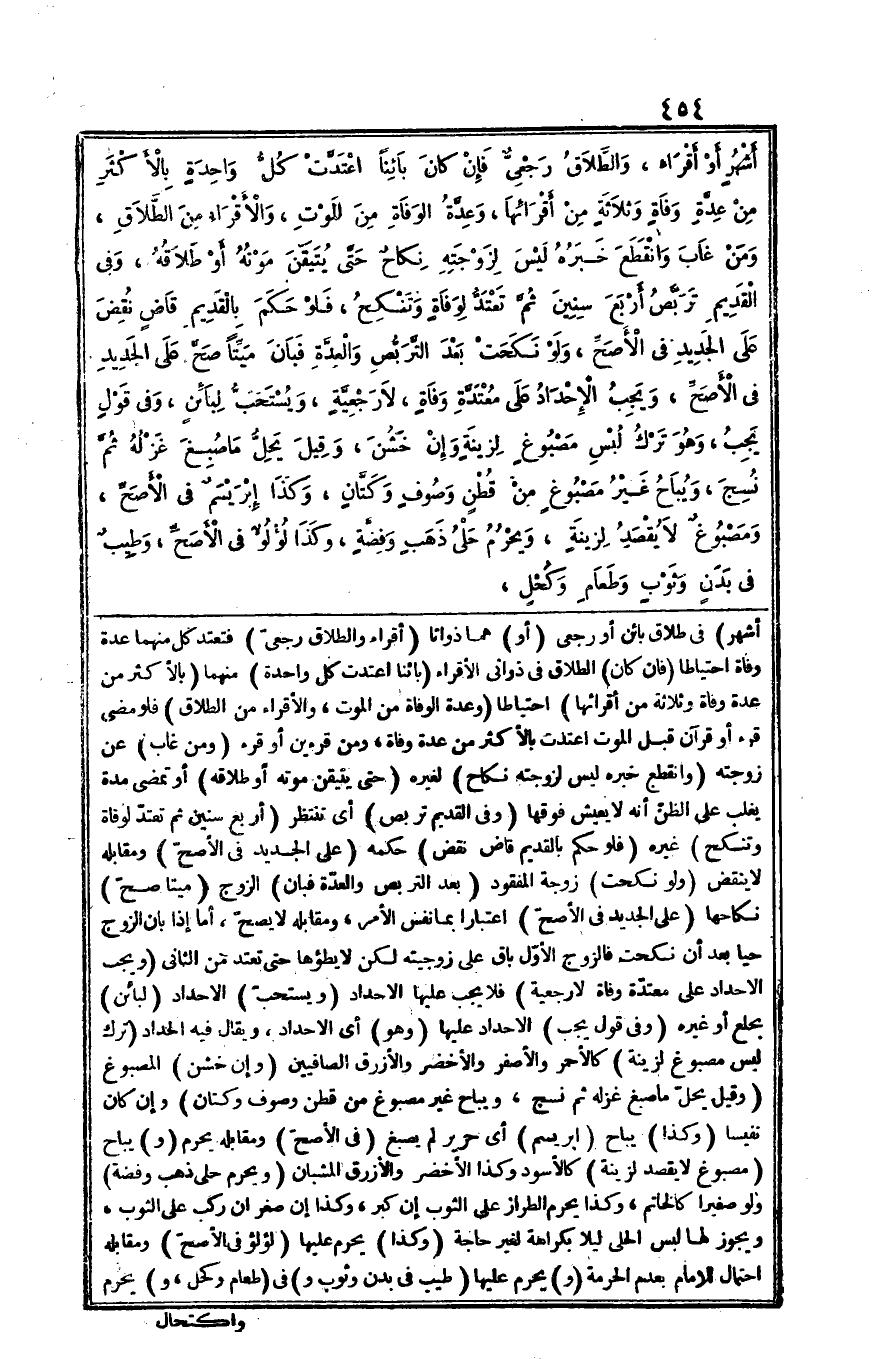 ٤٥٤
أَشْهُرٍ أَوْ أَقْرَاء ، وَالطَّلَاقُ رَجْعِيٌّ فَإِنْ كانَ بَائِنًا اعْتَدَّتْ كُلُّ وَاحِدَةٍ بِالْأَكْثَرِ
مِنْ عِدَّةِ وَفَاةٍ وَثَلَاثَةٍ مِنْ أَقْرَائِهَا ، وَعِدَّةُ الوَفَاةِ مِنَ المَوْتِ ، وَالْأَقْرَاءِ مِنَ الطَّلَاقِ ،
وَمَنْ غابَ وَانْقَطَعَ خَبَرُهُ لَيْسَ لِزَوْجَتِهِ نِكاحٌ حَتَّى يُتَيَقَّنَ مَوْتُهُ أَوْ طَلَاقُهُ ، وَفى
الْقَدِيمِ تَرَبَّصُ أَرْبَعَ سِنِينَ ثُمَّ تَعْتَدُّ لِوَفَاةٍ وَتَنْكِحُ ، فَلَوْ حَكَمَ بِالْقَدِيمِ قاضٍ نُقِضَ
عَلَى الجَدِيدِ فى الْأَصَحِّ ، وَلَوْ نَكَحَتْ بَعْدَ التَّرَبُّصِ وَالْعِدَّةِ فَبَانَ مَيِّتًا صَحَّ عَلَى الجَدِيدِ
فى الْأَصَحِّ ، وَيَجِبُ الْإِحْدَادُ عَلَى مُعْتَدَّةِ وَفَاةٍ ، لَا رَجْعِيَّةٍ ، وَيُسْتَحَبُّ لِبَائِنٍ ، وَفى قَوْلٍ
يَجِبُ ، وَهُوَ تَرْكُ لُبْسِ مَصْبُوغٍ لِزِينَةٍ وَإِنْ خَشُنَ ، وَقِيلَ يَحِلُّ مَا صُبِغَ غَزْلُهُ ثُمَّ
نُسِجَ ، وَيُبَاحُ غَيْرُ مَصْبُوغٍ مِنْ قُطْنٍ وَصُوفٍ وَكَتَّانٍ ، وَكَذَا إِبْرَيْسَمٌ فى الْأَصَحِّ ،
وَمَصْبُوغٌ لَا يُقْصَدُ لِزِينَةٍ ، وَيَحْرُمُ حَلْىُ ذَهَبٍ وَفِضَّةٍ ، وَكَذَا لُؤْلُؤٌ فى الْأَصَحِّ ، وَطِيبٌ
فى بَدَنٍ وَثَوْبٍ وَطَعَامٍ وَكُحْلٍ ،
أشهر ) فى طلاق بائن أو رجعى ( أو ) هما ذواتا ( أقراء والطلاق رجعىّ ) فتعتد كل منهما عدة
وفاة احتياطا ( فان كان ) الطلاق فى ذواتى الأقراء ( بائنا اعتدت كل واحدة ) منهما ( بالأكثر من
عدة وفاة وثلاثة من أقرائها ) احتياطا ( وعدة الوفاة من الموت ، والأقراء من الطلاق ) فلو مضى
قرء أو قرآن قبل الموت اعتدت بالأكثر من عدة وفاة ، ومن قرءين أو قرء ( ومن غاب ) عن
زوجته ( وانقطع خبره ليس لزوجته نكاح ) لغيره ( حتى يتيقن موته أو طلاقه ) أو تمضى مدة
يغلب على الظنّ أنه لا يعيش فوقها ( وفى القديم تربص ) أى تنتظر ( أربع سنين ثم تعتدّ لوفاة
وتنكح ) غيره ( فلو حكم بالقديم قاض نقض ) حكمه ( على الجديد فى الأصحّ ) ومقابله
لا ينقض ( ولو نكحت ) زوجة المفقود ( بعد التربص والعدّة فبان ) الزوج ( ميتا صحّ )
نكاحها ( على الجديد فى الأصحّ ) اعتبارا بما نفس الأمر ، ومقابله لا يصحّ ، أما إذا بان الزوج
حيا بعد أن نكحت فالزوج الأوّل باق على زوجيته لكن لا يطؤها حتى تعتد من الثانى ( ويجب
الاحداد على معتدّة وفاة لا رجعية ) فلا يجب عليها الاحداد ( ويستحبّ ) الاحداد ( لبائن )
بخلع أو غيره ( وفى قول يجب ) الاحداد عليها ( وهو ) أى الاحداد ، ويقال فيه الحداد ( ترك
لبس مصبوغ لزينة ) كالأحمر والأصفر والأخضر والأزرق الصافيين ( وإن خشن ) المصبوغ
( وقيل يحلّ ماصبغ غزله ثم نسج ، ويباح غير مصبوغ من قطن وصوف وكتان ) وإن كان
نفيسا ( وكذا ) يباح ( ابريسم ) أى حرير لم يصبغ ( فى الأصحّ ) ومقابله يحرم ( و ) يباح
( مصبوغ لا يقصد لزينة ) كالأسود وكذا الأخضر والأزرق المشبان ( ويحرم حلى ذهب وفضة )
ولو صغيرا كالخاتم ، وكذا يحرم الطراز على الثوب إن كبر ، وكذا إن صغر ان ركب على الثوب ،
ويجوز لها لبس الحلى ليلا بكراهة لغير حاجة ( وكذا ) يحرم عليها ( لؤلؤ فى الأصحّ ) ومقابله
احتمال للامام بعدم الحرمة ( و ) يحرم عليها ( طيب فى بدن وثوب و ) فى ( طعام وكحل ، و ) يحرم
واكتحال